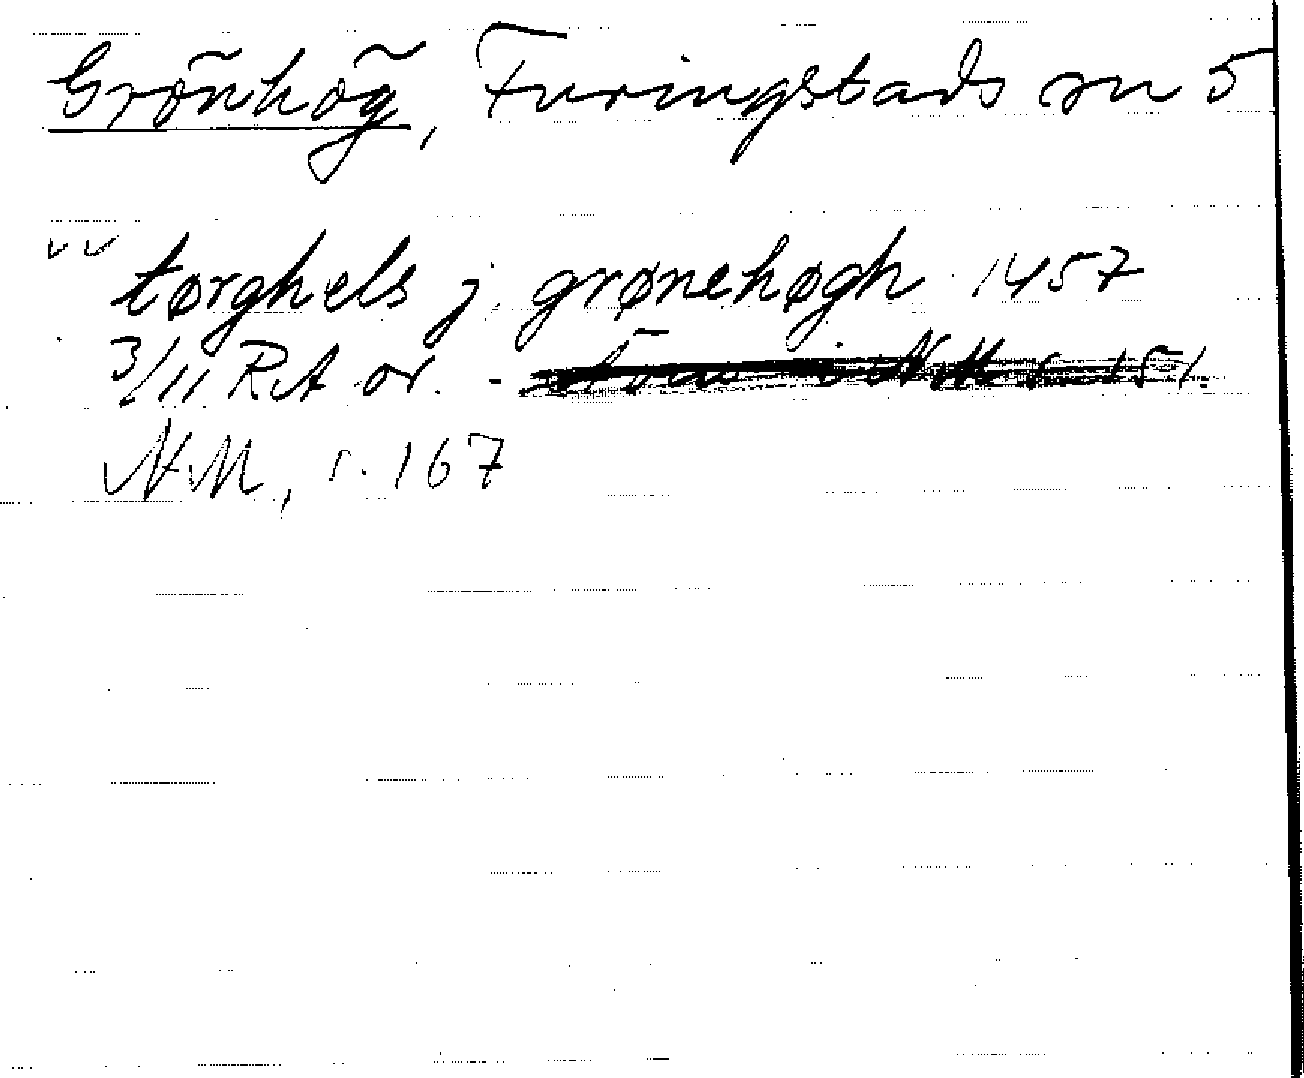 Grönhög, Furingstads sn 5
vv tørghels j grønehøgh 1457
3/11 RA or. -
NM, s. 167